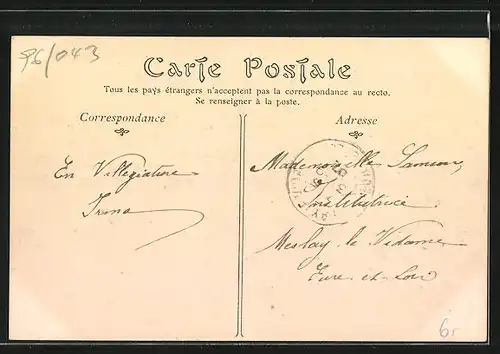 96/043
Carte Postale
Tous les pays étrangers n'acceptent pas la correspondance au recto.
Se renseigner à la poste.
Correspondance
En Villégiature
Irma
Adresse
Mademoiselle Samson,
Institutrice
Meslay le Vidame
Eure-et-Loir
6r